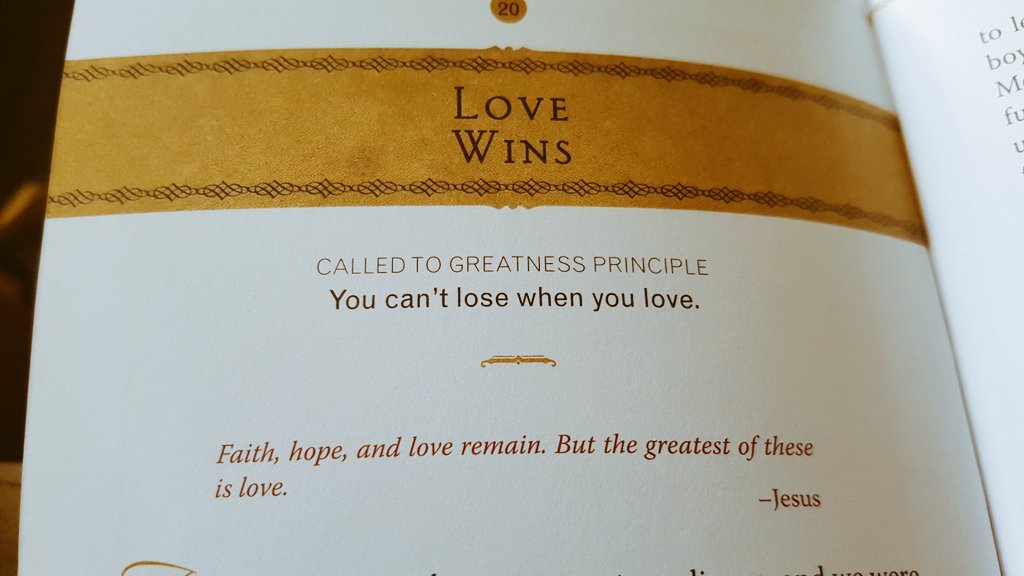 20
LOVE
WINS
CALLED TO GREATNESS PRINCIPLE
You can't lose when you love.
Faith, hope, and love remain. But the greatest of these
is love.
–Jesus
and we were
to